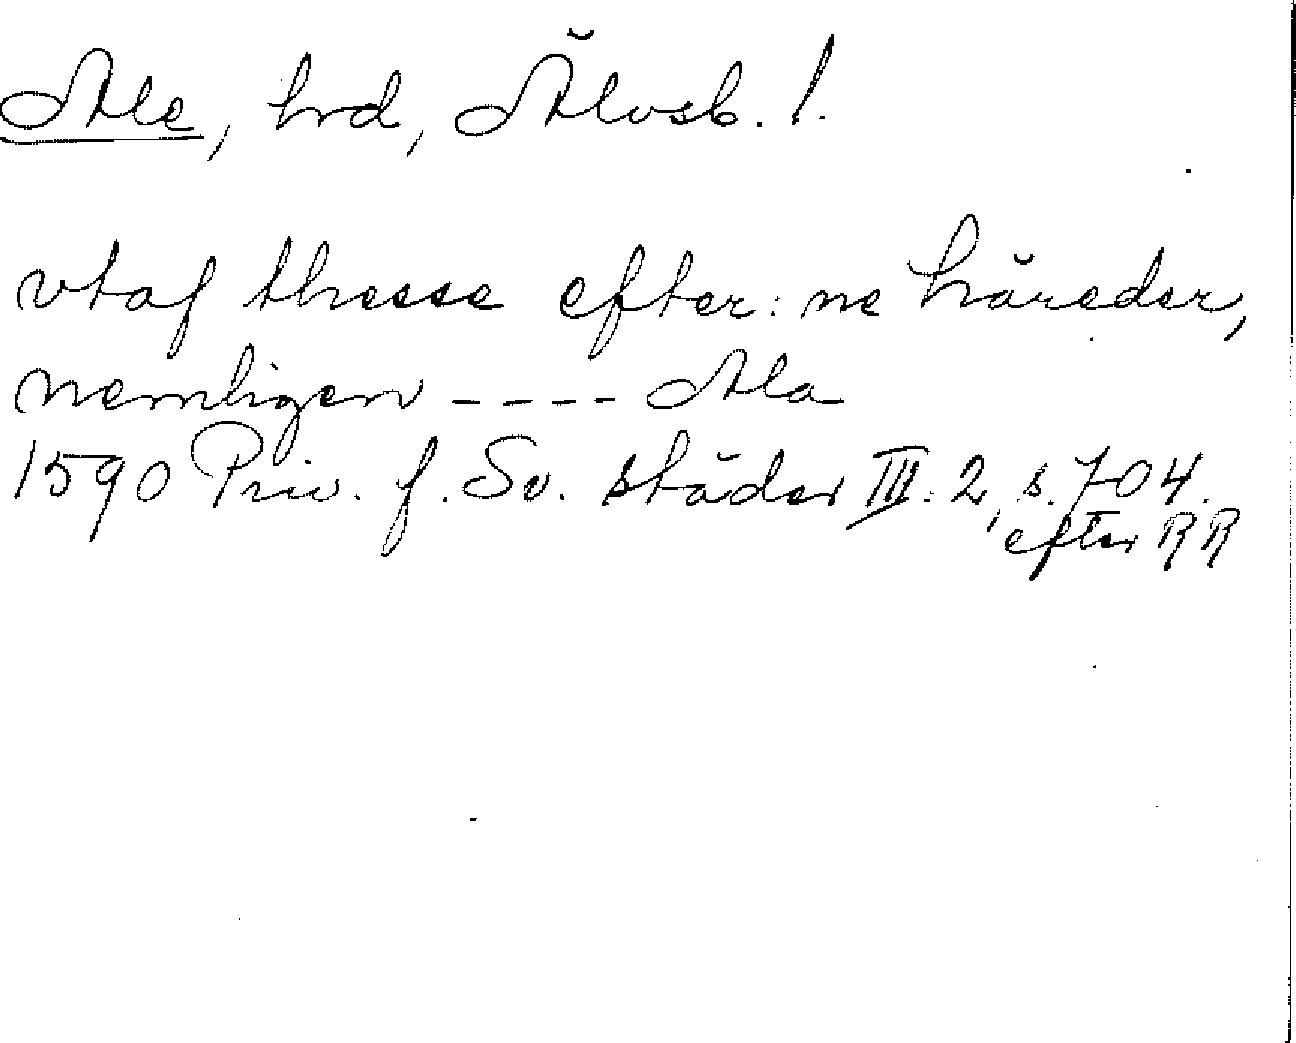 Ale, hrd, Älvsb. l.
vtaf thesse efter: ne häreder,
nemligen ---- Ala
1590 Priv. f. Sv. städer III. 2, s. 704.
efter RR